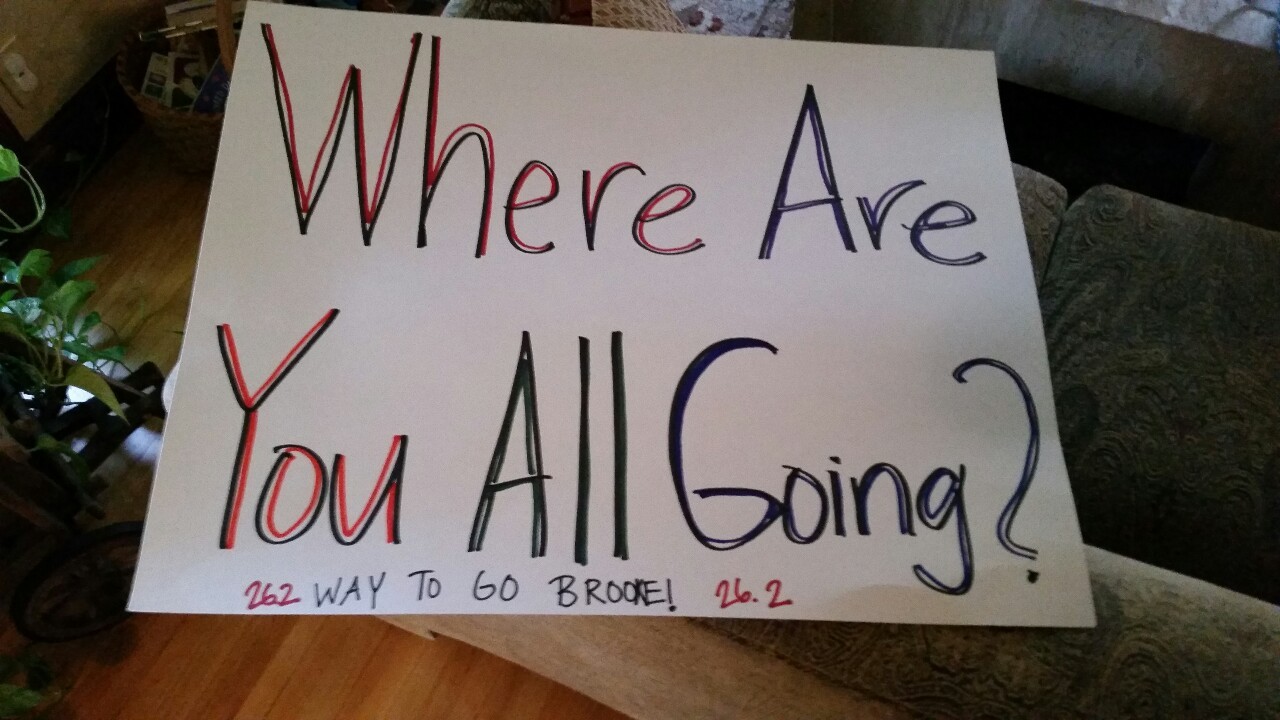 Where Are
You All Going?
262 WAY TO GO BROOKE! 26.2